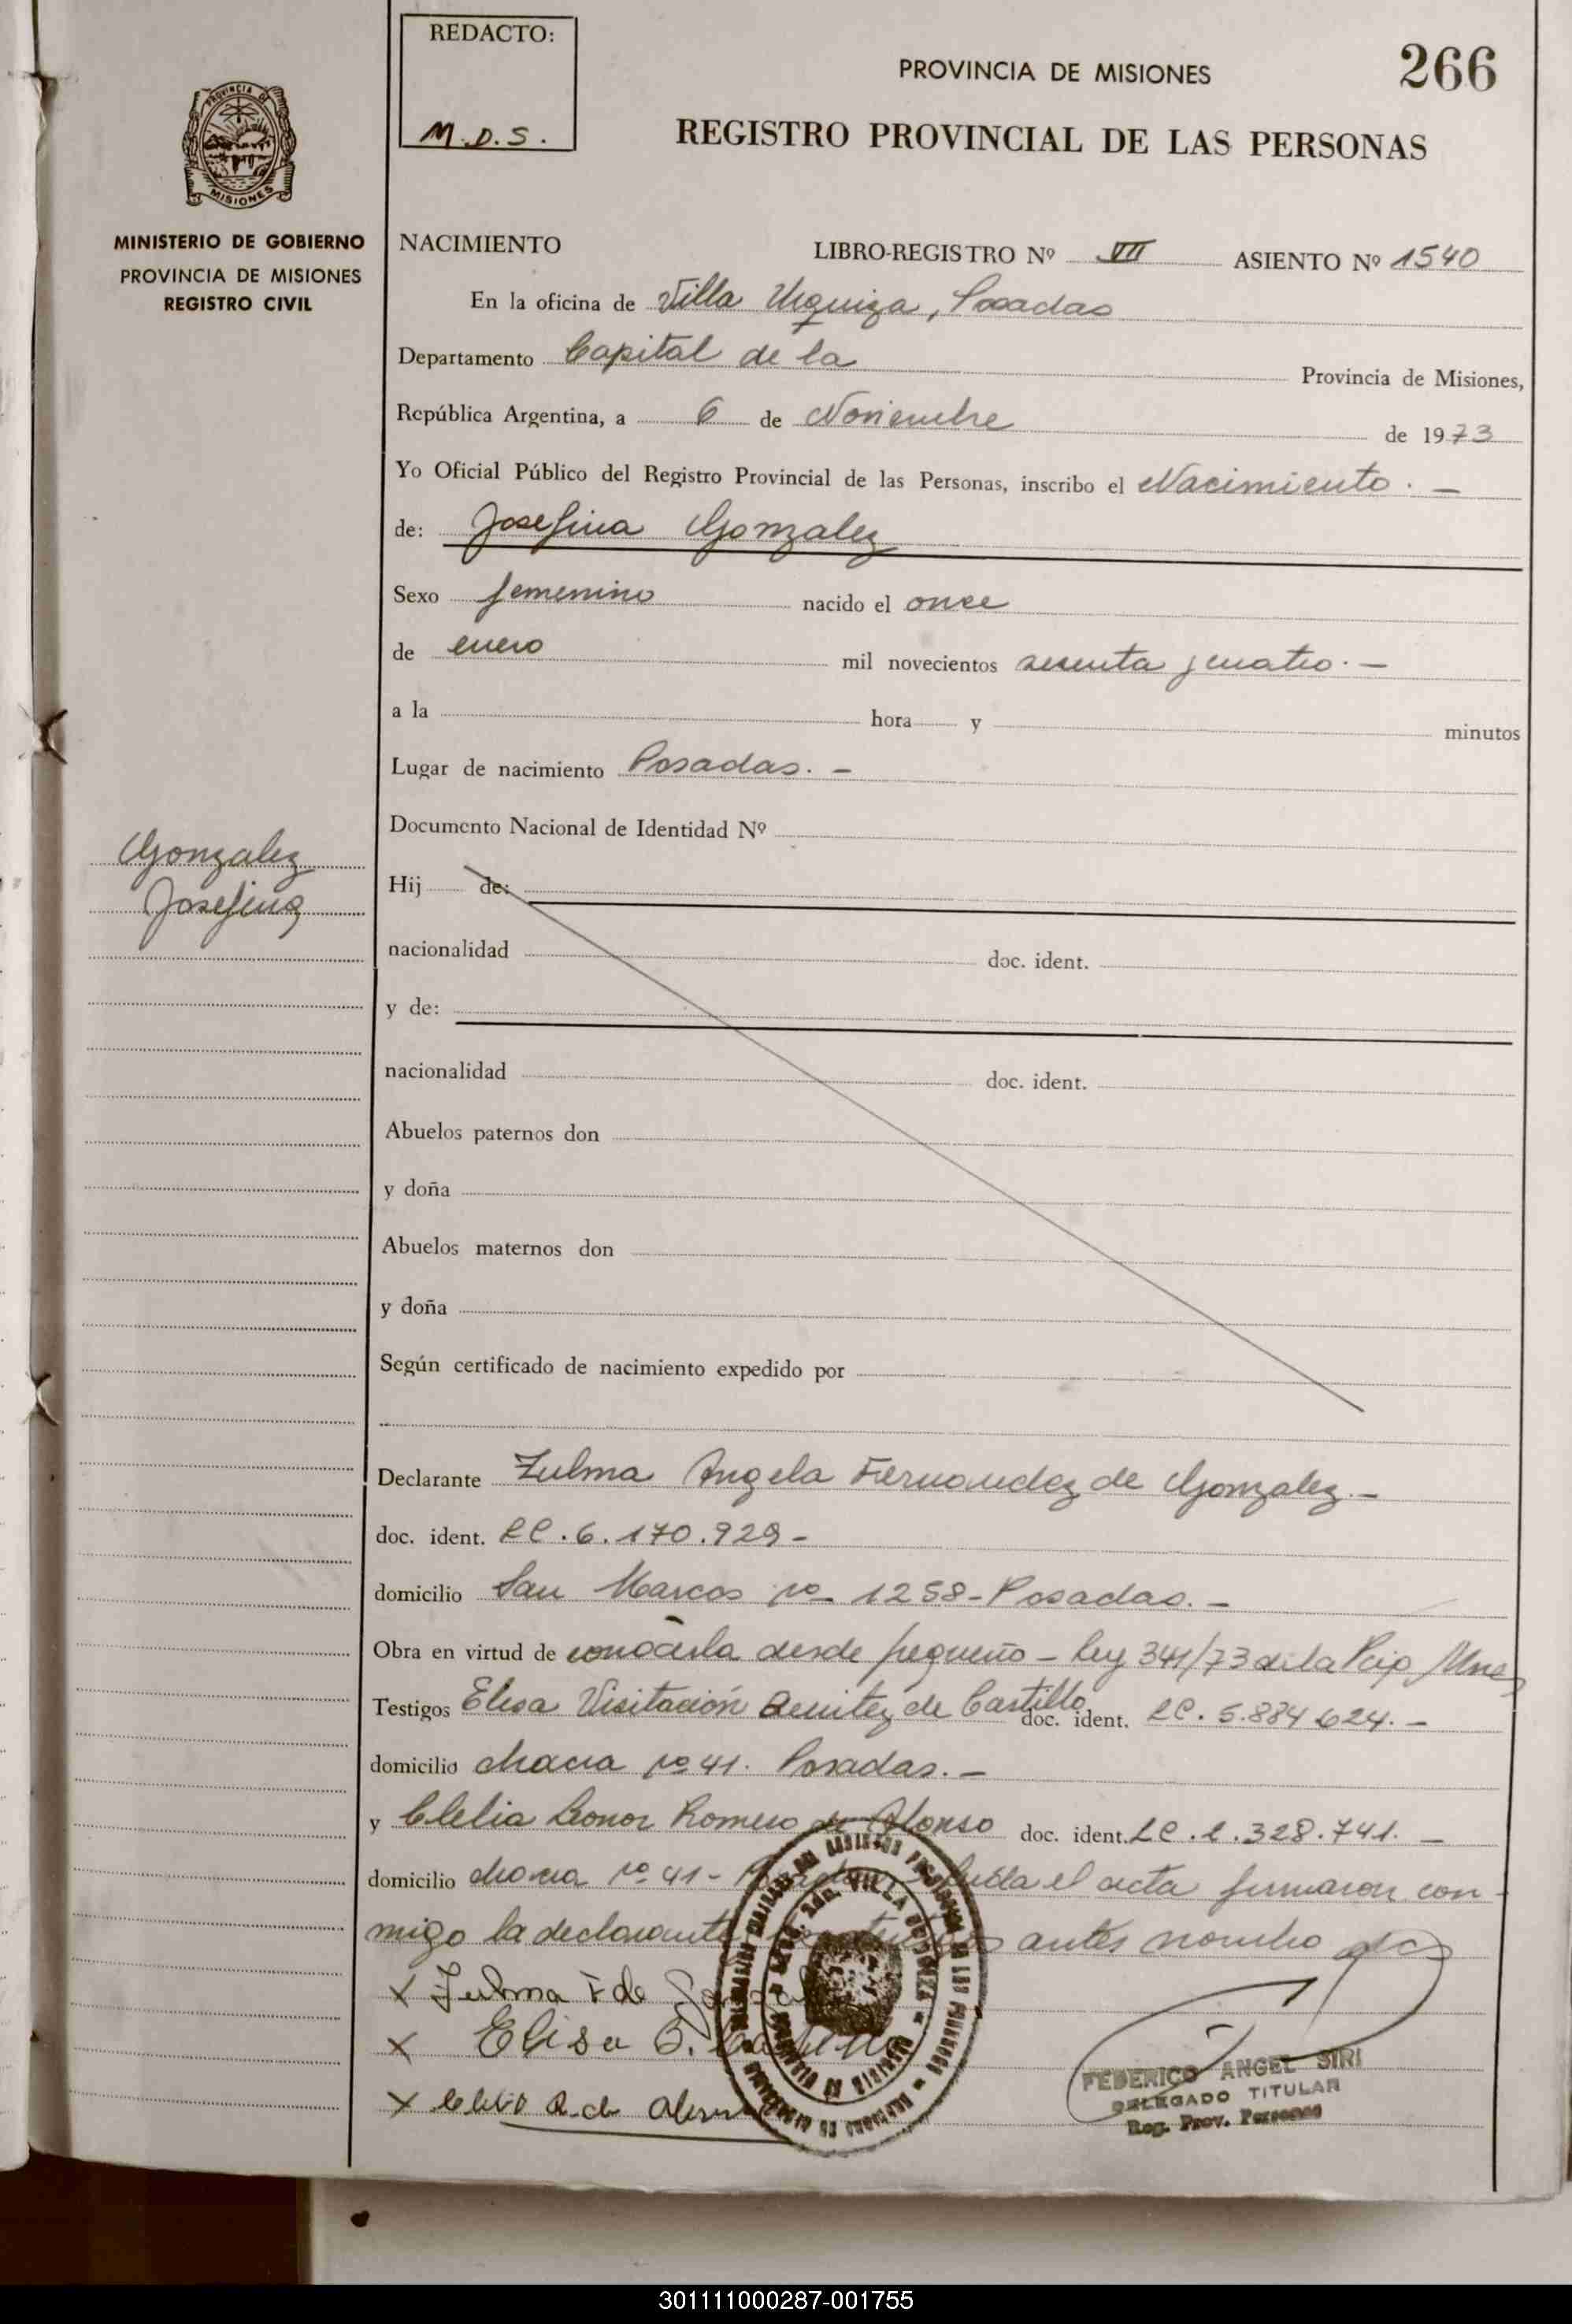 REDACTO:
M.D.S.
PROVINCIA DE MISIONES
266
REGISTRO PROVINCIAL DE LAS PERSONAS
PROVINCIA DE
MISIONES
MINISTERIO DE GOBIERNO
PROVINCIA DE MISIONES
REGISTRO CIVIL
NACIMIENTO LIBRO-REGISTRO Nº VII ASIENTO Nº 1540
En la oficina de Villa Urquiza, Posadas
Departamento Capital de la Provincia de Misiones,
República Argentina, a 6 de Noviembre de 1973
Yo Oficial Público del Registro Provincial de las Personas, inscribo el Nacimiento. —
de: Josefina Gonzalez
Sexo femenino nacido el once
de enero mil novecientos sesenta y cuatro. —
a la hora y minutos
Lugar de nacimiento Posadas. —
Documento Nacional de Identidad Nº
Gonzalez
Josefina
Hij de:
nacionalidad doc. ident.
y de:
nacionalidad doc. ident.
Abuelos paternos don
y doña
Abuelos maternos don
y doña
Según certificado de nacimiento expedido por
Declarante Zulma Angela Fernandez de Gonzalez. —
doc. ident. LC. 6.170.929 -
domicilio San Marcos nº 1258 - Posadas. —
Obra en virtud de conocerla desde pequeño - Ley 341/73 de la Pcia Mnes
Testigos Elisa Visitación Benitez de Castillo doc. ident. LC. 5.884 624. —
domicilio chacra nº 41. Posadas. —
y Clelia Leonor Romero de Alonso doc. ident. LC. 2.328.741. —
domicilio chacra nº 41 - el acta firmaron con-
migo la declarante antes nombrados
x Zulma F de
x Elisa B.
x Clelia R. de Alonso
VILLA URQUIZA
FEDERICO ANGEL SIRI
DELEGADO TITULAR
Reg. Prov. Personas
301111000287-001755